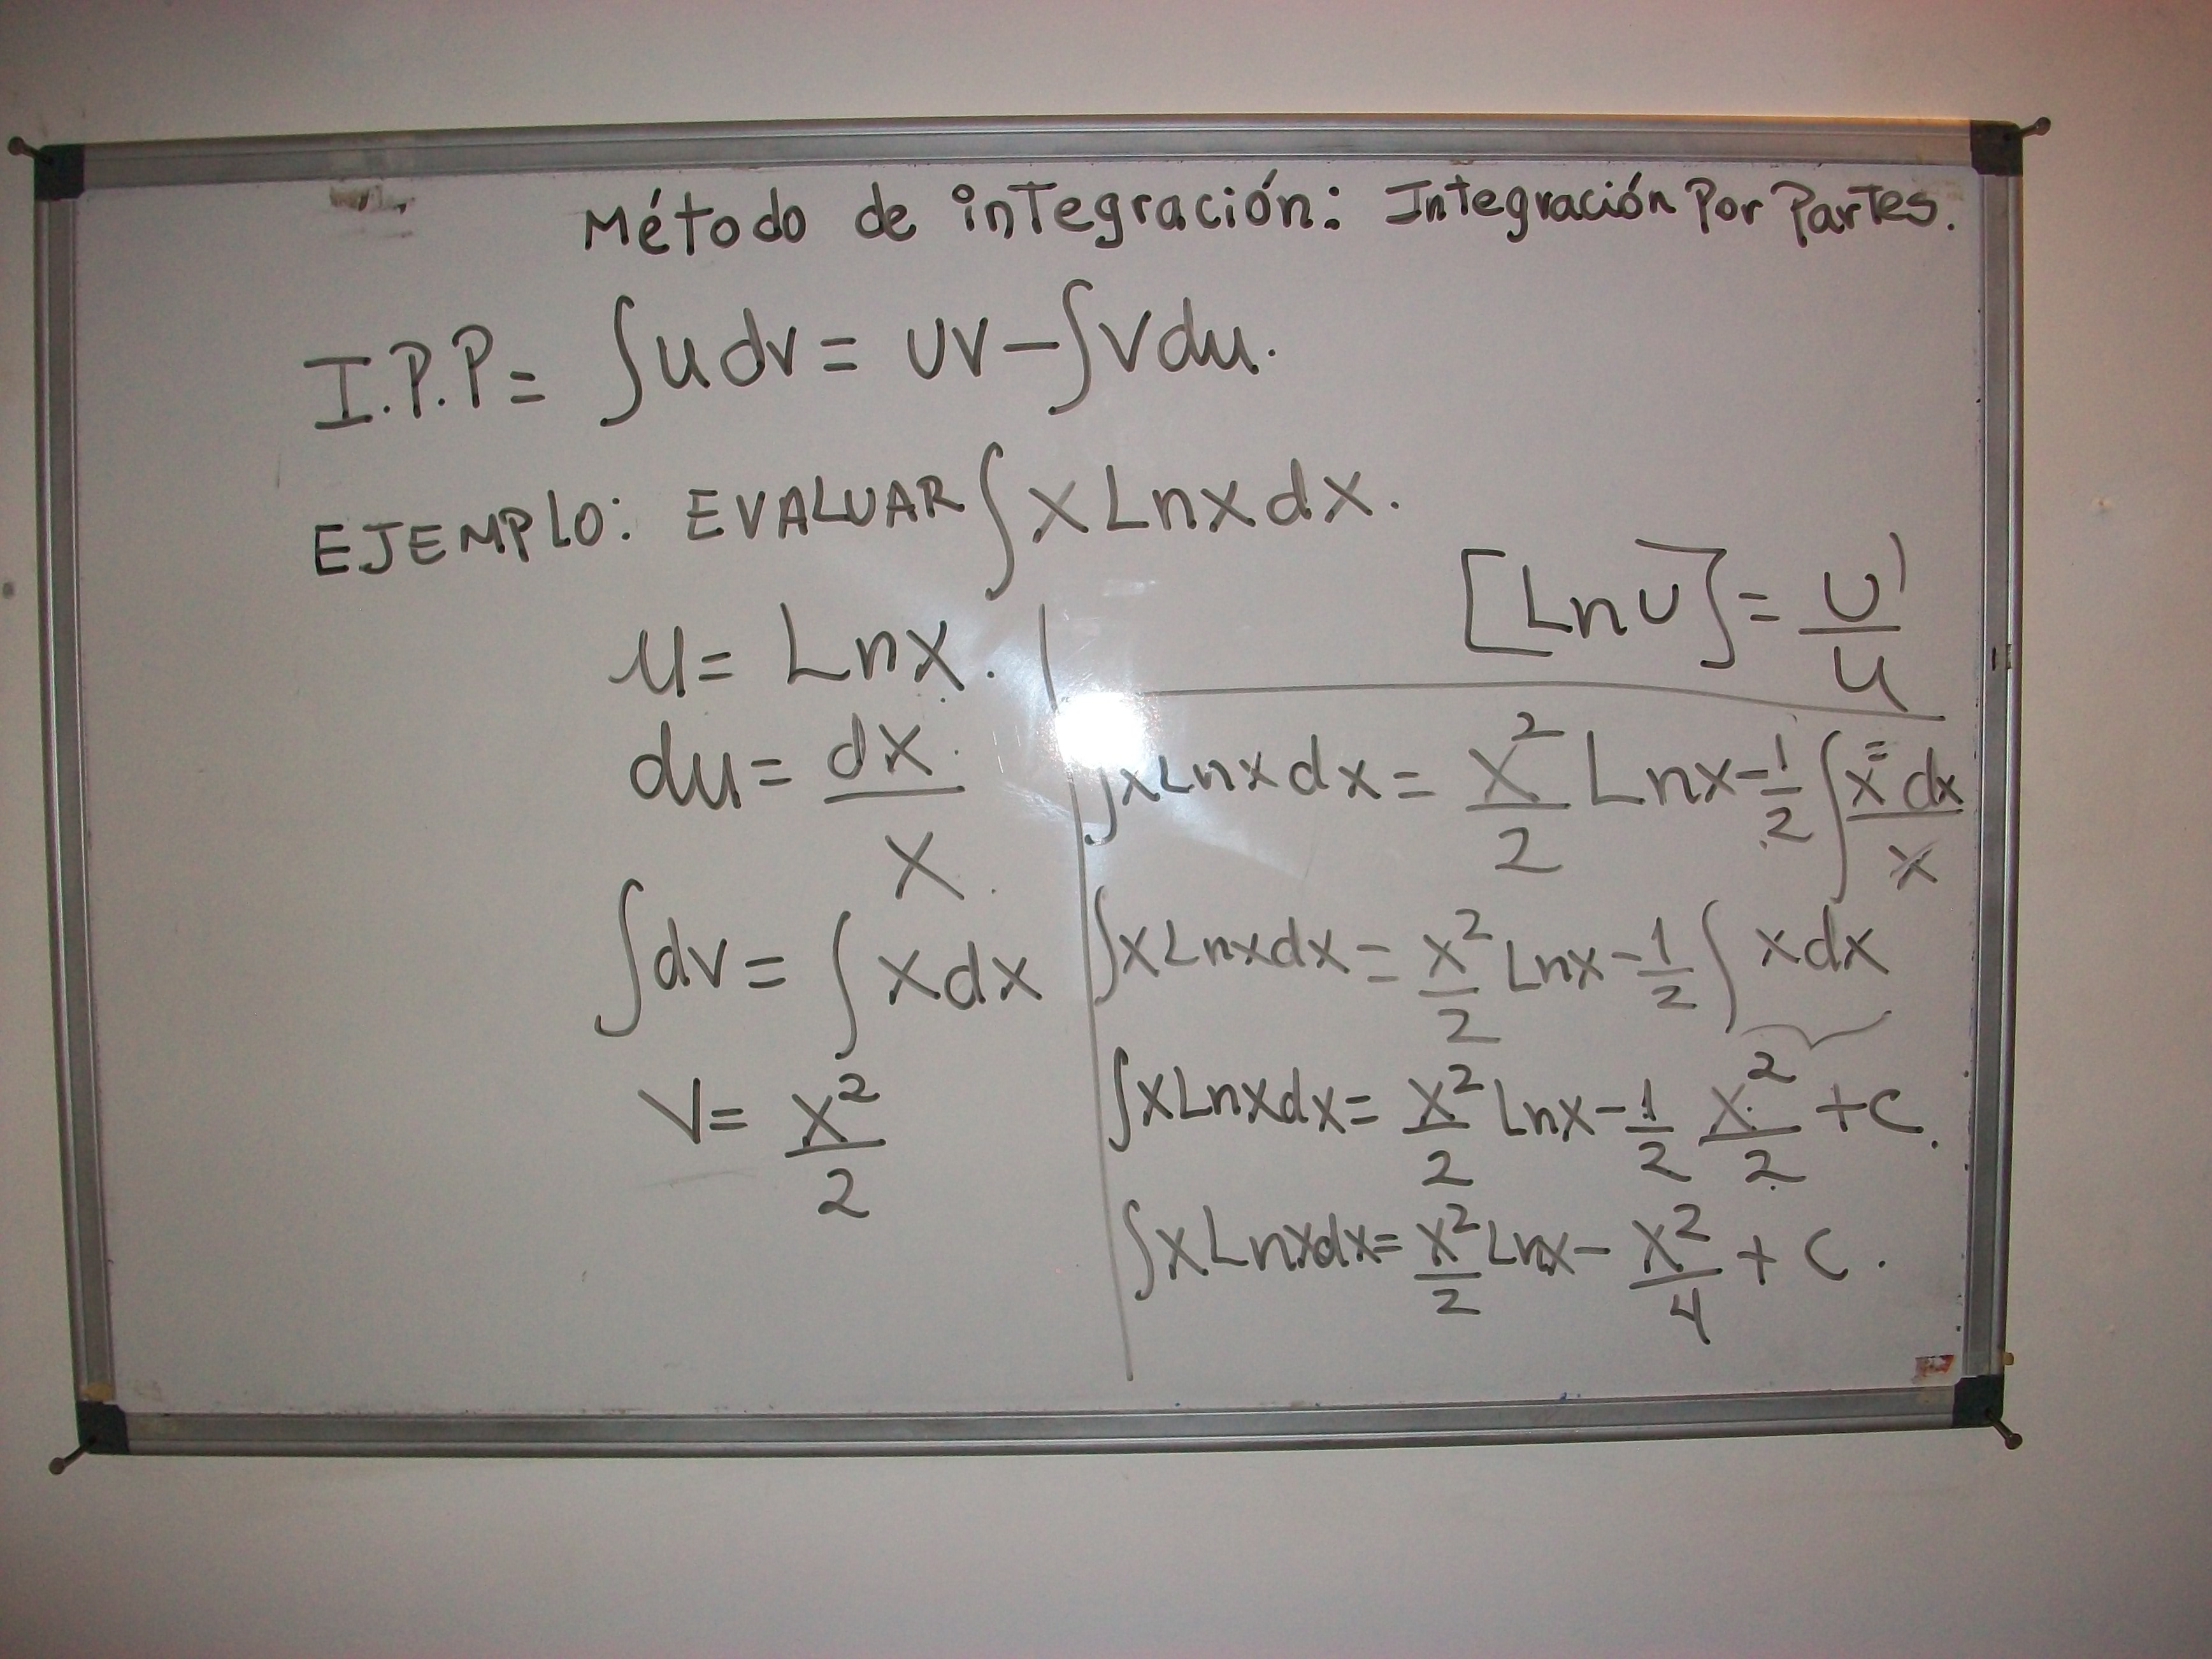 Método de integración: Integración Por Partes.
I.P.P= ∫udv= uv-∫vdu.
EJEMPLO: EVALUAR ∫x Lnx dx.
[Ln U]'= U'/U
u= Lnx.
du= dx/x.
∫dv= ∫xdx
V= x²/2
∫xLnxdx= x²/2 Lnx-1/2 ∫x² dx/x
∫xLnxdx= x²/2 Lnx-1/2 ∫xdx
∫xLnxdx= x²/2 Lnx-1/2 x²/2 +C.
∫xLnxdx= x²/2 Lnx- x²/4 + C.